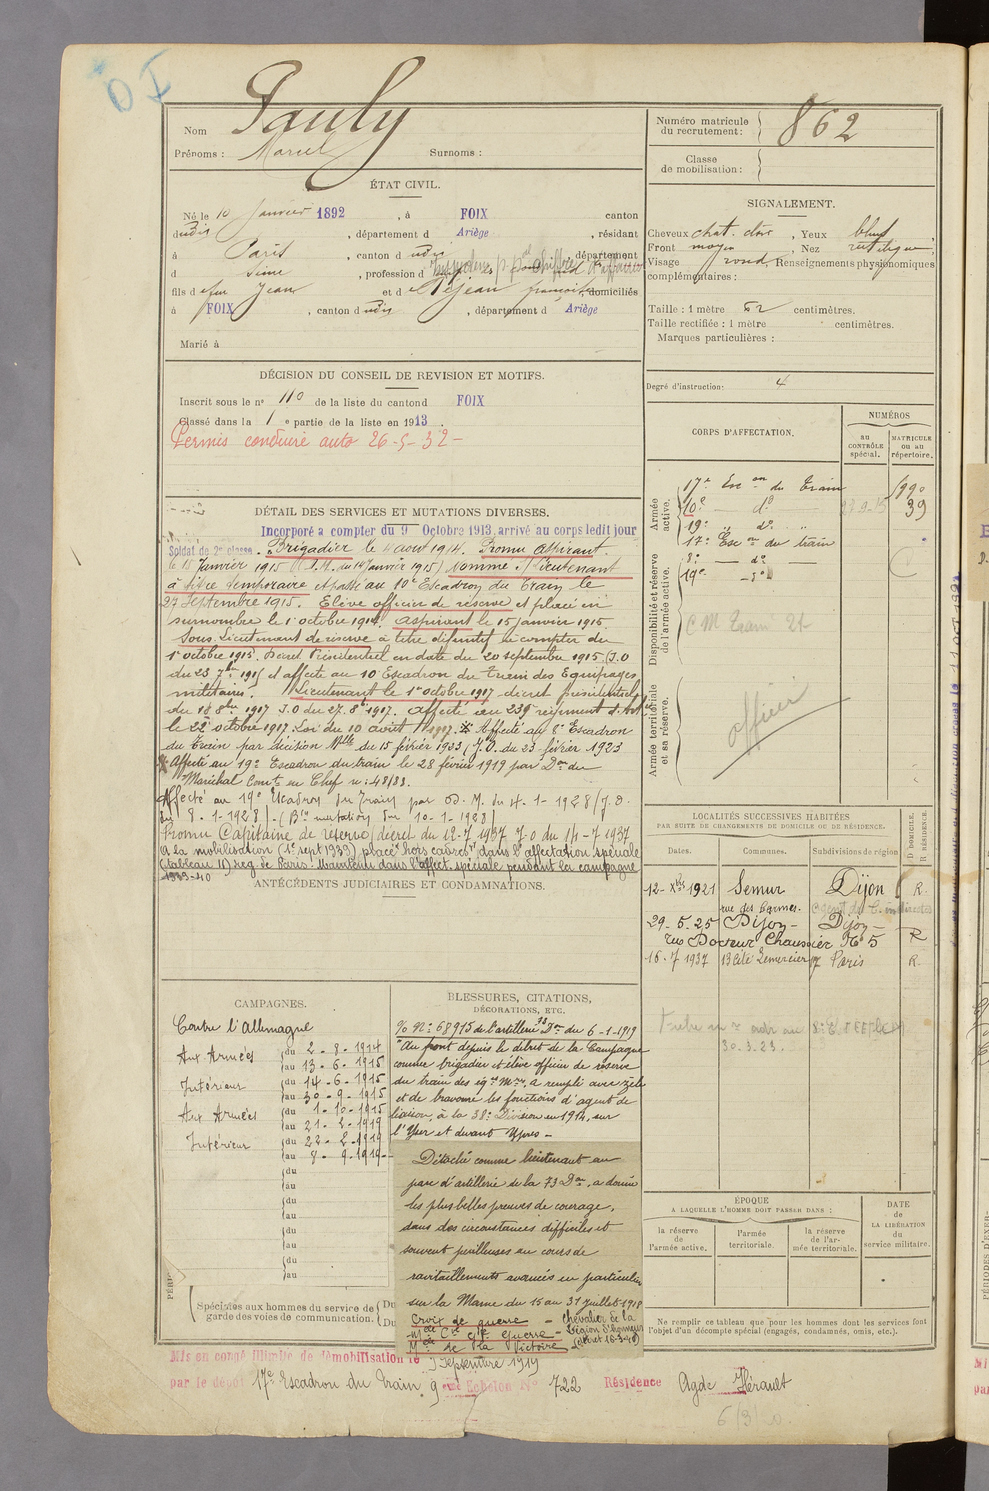 OI
Nom Pauly
Prénoms : Marcel Surnoms :
ÉTAT CIVIL.
Né le 10 Janvier 1892, à FOIX canton
dudis, département d Ariège, résidant
à Paris, canton d udis département
d Seine, profession d
fils d e feu Jean et d e Pejean françoise, domiciliés
à FOIX, canton d udis, département d Ariège
Marié à
DÉCISION DU CONSEIL DE REVISION ET MOTIFS.
Inscrit sous le n° 110 de la liste du canton d FOIX
Classé dans la 1 e partie de la liste en 1913.
Permis conduire auto 26-5-32-
DÉTAIL DES SERVICES ET MUTATIONS DIVERSES.
Incorporé a compter du 9 Octobre 1913, arrivé au corps ledit jour
Soldat de 2e classe. Brigadier le 4 aout 1914. Promu aspirant
le 15 janvier 1915 (D.M. du 14 Janvier 1915) nomme s/Lieutenant
à titre temporaire et passé au 10e Escadron du Train le
27 Septembre 1915. Elève officier de réserve et placé en
surnombre le 1er octobre 1914. aspirant le 15 janvier 1915.
Sous Lieutenant de réserve à titre définitif à compter du
1er octobre 1915. Décret Présidentiel en date du 20 septembre 1915 (J.O
du 23 7bre 1915) et affecté au 10e Escadron du Train des Equipages
militaires. Lieutenant le 1er octobre 1917 décret présidentiel
du 18 8bre 1917 J.O du 27. 8bre 1917. Affecté au 239e régiment d'Art
le 22 octobre 1917. Loi du 10 août 1917. Affecté au 8e Escadron
du Train par décision Mlle du 15 février 1923 (J.O. du 23 février 1923
Affecté au 19e Escadron du train le 28 février 1919 par Don du
Maréchal Comt en Chef n: 48/33.
Affecté au 19e Escadron du Train par D. M. du 4-1-1928 (J.O.
du 8-1-1928). (Bin mutation du 10-1-1928)
Promu Capitaine de réserve (décret du 12-7 1937 J.O du 14-7 1937
A la mobilisation (1er sept 1939) placé "hors cadres" dans l'affectation spéciale
(tableau II) reg. de Paris. Maintenu dans l'affect. spéciale pendant la campagne
1939-40
ANTÉCÉDENTS JUDICIAIRES ET CONDAMNATIONS.
CAMPAGNES.
Contre l'Allemagne
Aux Armées du 2-8-1914
au 13-6-1915
Intérieur du 14-6-1915
au 30-9-1915
Aux Armées du 1-10-1915
au 21-2-1919
Intérieur du 22-2-1919
au 8-9-1919-
du
au
du
au
du
au
du
au
Spéciales aux hommes du service de garde des voies de communication. Du
Du
BLESSURES, CITATIONS,
DÉCORATIONS, ETC.
% N°: 68915 de l'artillerie 38 Don du 6-1-1919
"Au front depuis le début de la Campagne
comme brigadier et élève officier de réserve
du train des éqes Mres, a rempli avec zèle
et de bravoure les fonctions d'agent de
liaison, à la 38e Division en 1914, sur
l'Yser et devant Ypres -
Détaché comme lieutenant au
parc d'artillerie de la 73 Don, a donné
les plus belles preuves de courage,
dans des circonstances difficiles et
souvent périlleuses au cours de
ravitaillements avancés en particulier
sur la Marne du 15 au 31 juillet 1918
Croix de guerre - Chevalier de la
Mlle Cve Gde Guerre - Légion d'honneur
Mlle de la Victoire
Mis en congé illimité de démobilisation le 9 Septembre 1919
par le dépôt 17e Escadron du Train 9 eme Echelon N° 722 Résidence Agde Hérault
Numéro matricule
du recrutement : 862
Classe
de mobilisation :
SIGNALEMENT.
Cheveux chat. clair, Yeux bleus
Front moyen, Nez rectiligne
Visage rond. Renseignements physionomiques
complémentaires :
Taille : 1 mètre 62 centimètres.
Taille rectifiée : 1 mètre centimètres.
Marques particulières :
Degré d'instruction : 4
CORPS D'AFFECTATION.
NUMÉROS
au CONTRÔLE spécial.
MATRICULE ou au répertoire.
Armée active.
17e Escon du Train 1990
10e do 39
19e " do "
17e Escon du train
Disponibilité et réserve de l'armée active.
8e - do -
19e - do
C M Train 21
Armée territoriale et sa réserve.
officier
LOCALITÉS SUCCESSIVES HABITÉES
PAR SUITE DE CHANGEMENTS DE DOMICILE OU DE RÉSIDENCE.
Dates. Communes. Subdivisions de région
D DOMICILE. R RÉSIDENCE.
12-Xbre 1921 Semur Dijon R.
rue des Carmes.
29-5-25 Dijon - Dijon -
rue Docteur Chaussier N° 5 R
16-7 1937 13 Cité Lemercier 17 Paris R.
30.3.23.
ÉPOQUE
A LAQUELLE L'HOMME DOIT PASSER DANS :
la réserve de l'armée active.
l'armée territoriale.
la réserve de l'armée territoriale.
DATE
de
LA LIBÉRATION
du
service militaire.
Ne remplir ce tableau que pour les hommes dont les services font
l'objet d'un décompte spécial (engagés, condamnés, omis, etc.).